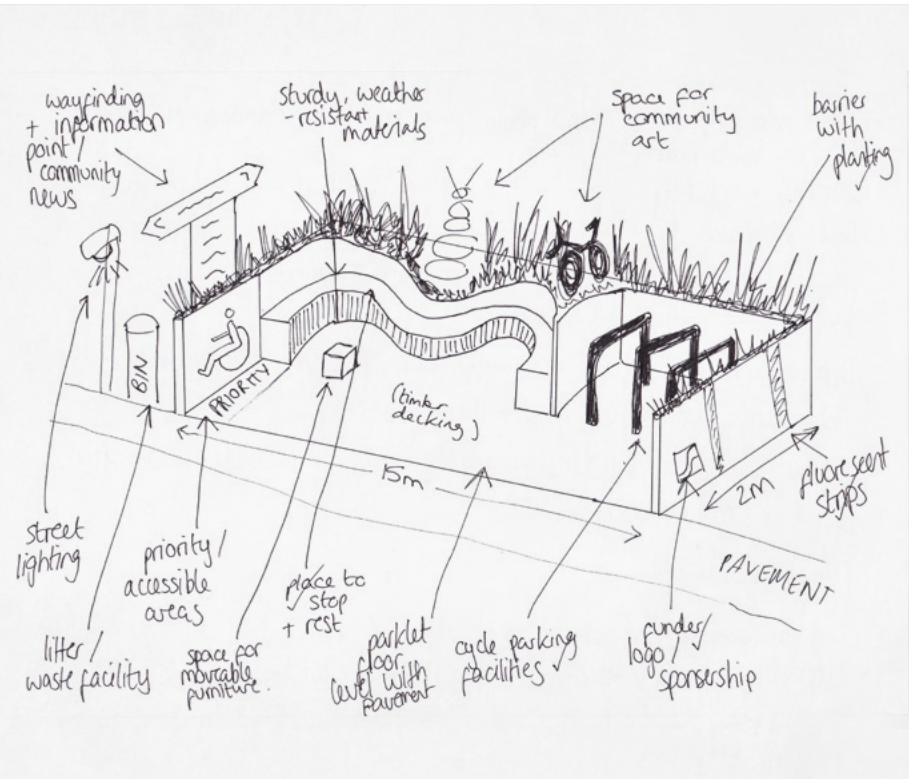 wayfinding
+ information
point/
community
news
sturdy, weather
-resistant
materials
space for
community
art
barrier
with
planting
BIN
PRIORITY
(timber
decking)
15m
2m
fluorescent
strips
PAVEMENT
street
lighting
litter/
waste facility
priority/
accessible
areas
space for
moveable
furniture.
place to
stop
+ rest
parklet
floor
level with
pavement
cycle parking
facilities
funder/
logo/
sponsership